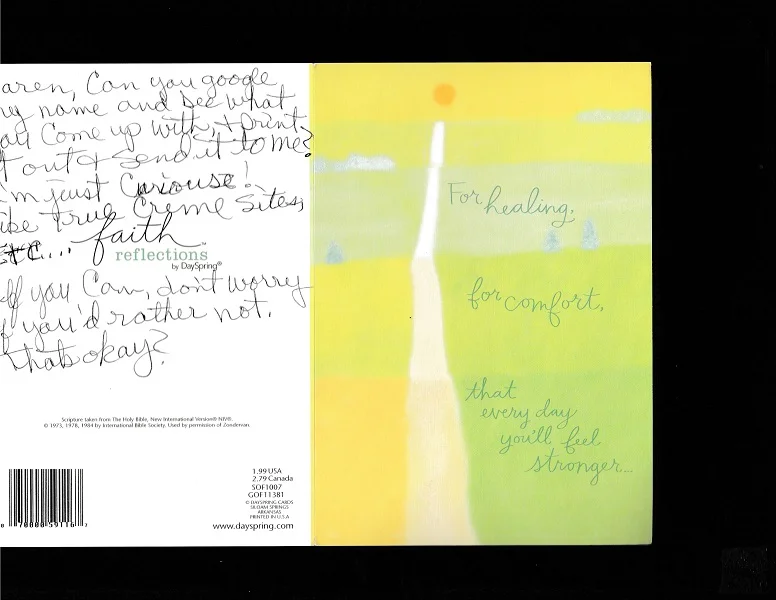 aren, Can you google
my name and see what
you Come up with, + print
it out + send it to me?
I'm just Curiouse!
like True Creme Sites,
etc....
faith™
reflections
by DaySpring®
If you Can, don't worry
if you'd rather not.
that's okay?
Scripture taken from The Holy Bible, New International Version® NIV®.
© 1973, 1978, 1984 by International Bible Society. Used by permission of Zondervan.
1.99 USA
2.79 Canada
SOF1007
GOF11381
© DAYSPRING CARDS
SILOAM SPRINGS
ARKANSAS
PRINTED IN U.S.A
www.dayspring.com
For healing,
for comfort,
that
every day
you'll feel
stronger...